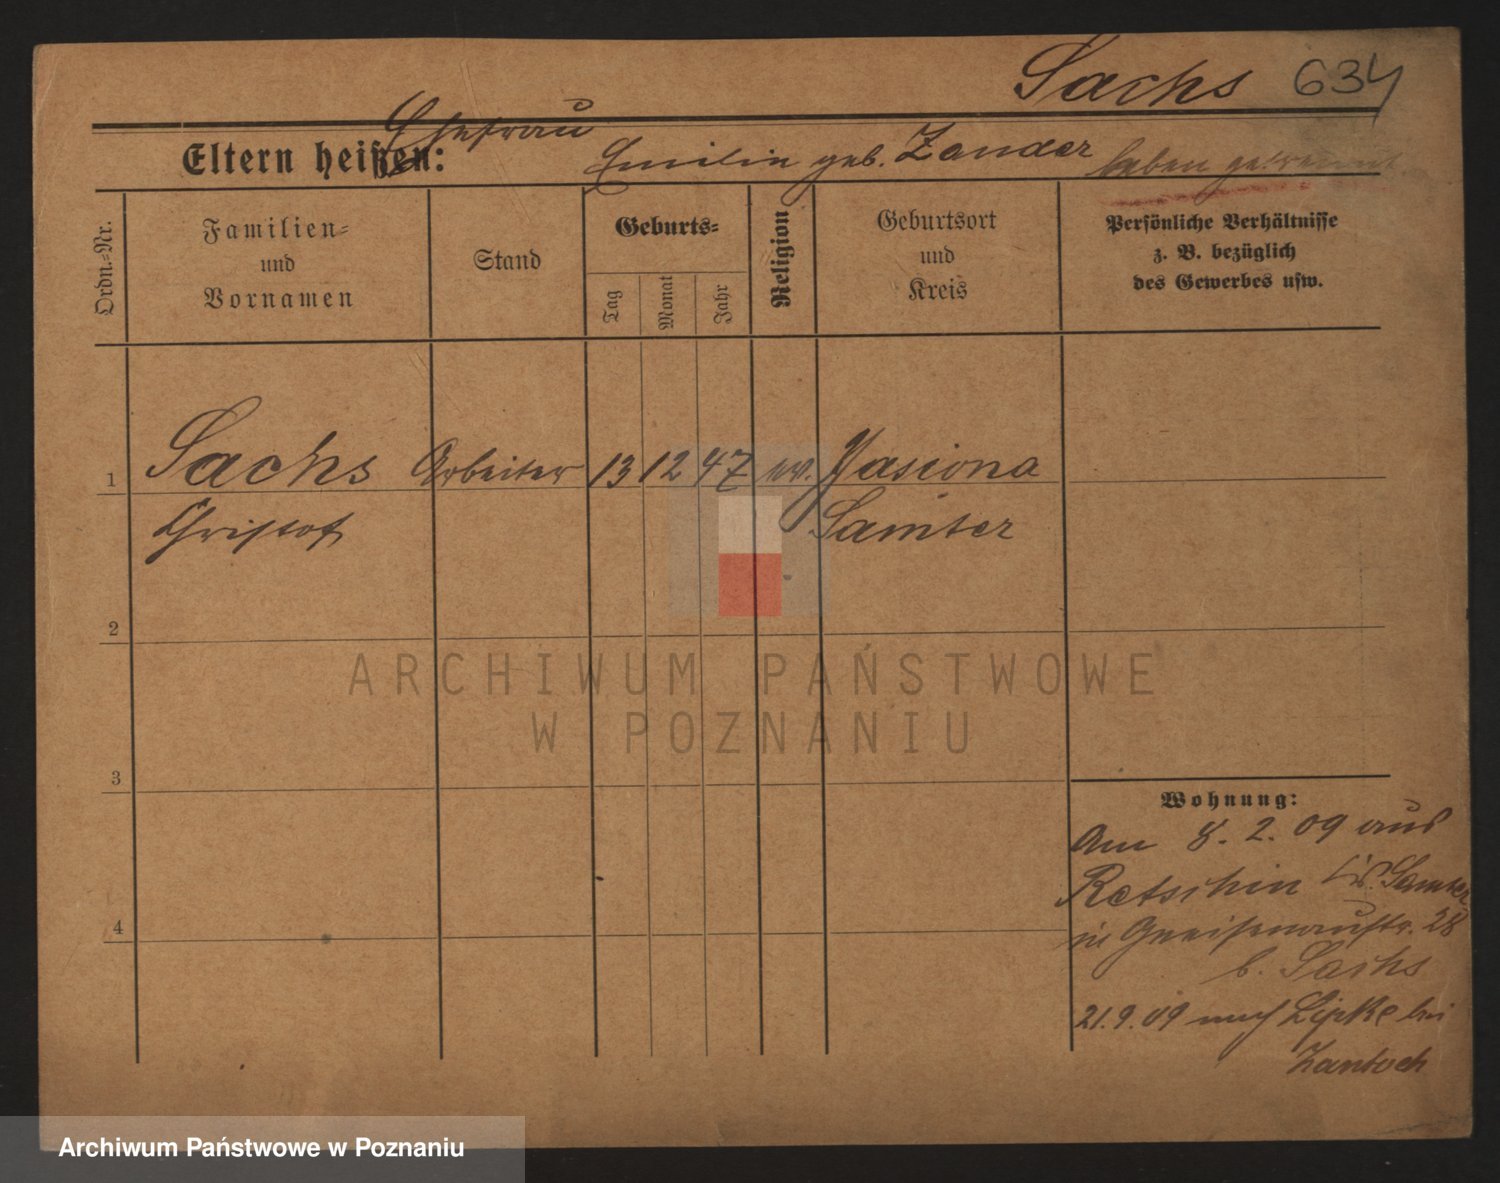 Sachs 634
Ehefrau
Eltern heißen: Emilie geb. Zander leben getrennt
Ordn.-Nr.
Familien-
und
Vornamen
Stand
Geburts-
Tag
Monat
Jahr
Religion
Geburtsort
und
Kreis
Persönliche Verhältnisse
z. B. bezüglich
des Gewerbes usw.
1 Sachs Arbeiter 13 12 47 ev. Jasiona
Christof Samter
2
3
4
Wohnung:
Am 8. 2. 09 aus
Retschin Kr. Samter
in Gneisenaustr. 28
b. Sachs
21.9.09 nach Lipke bei
Zantoch
ARCHIWUM PAŃSTWOWE
W POZNANIU
Archiwum Państwowe w Poznaniu